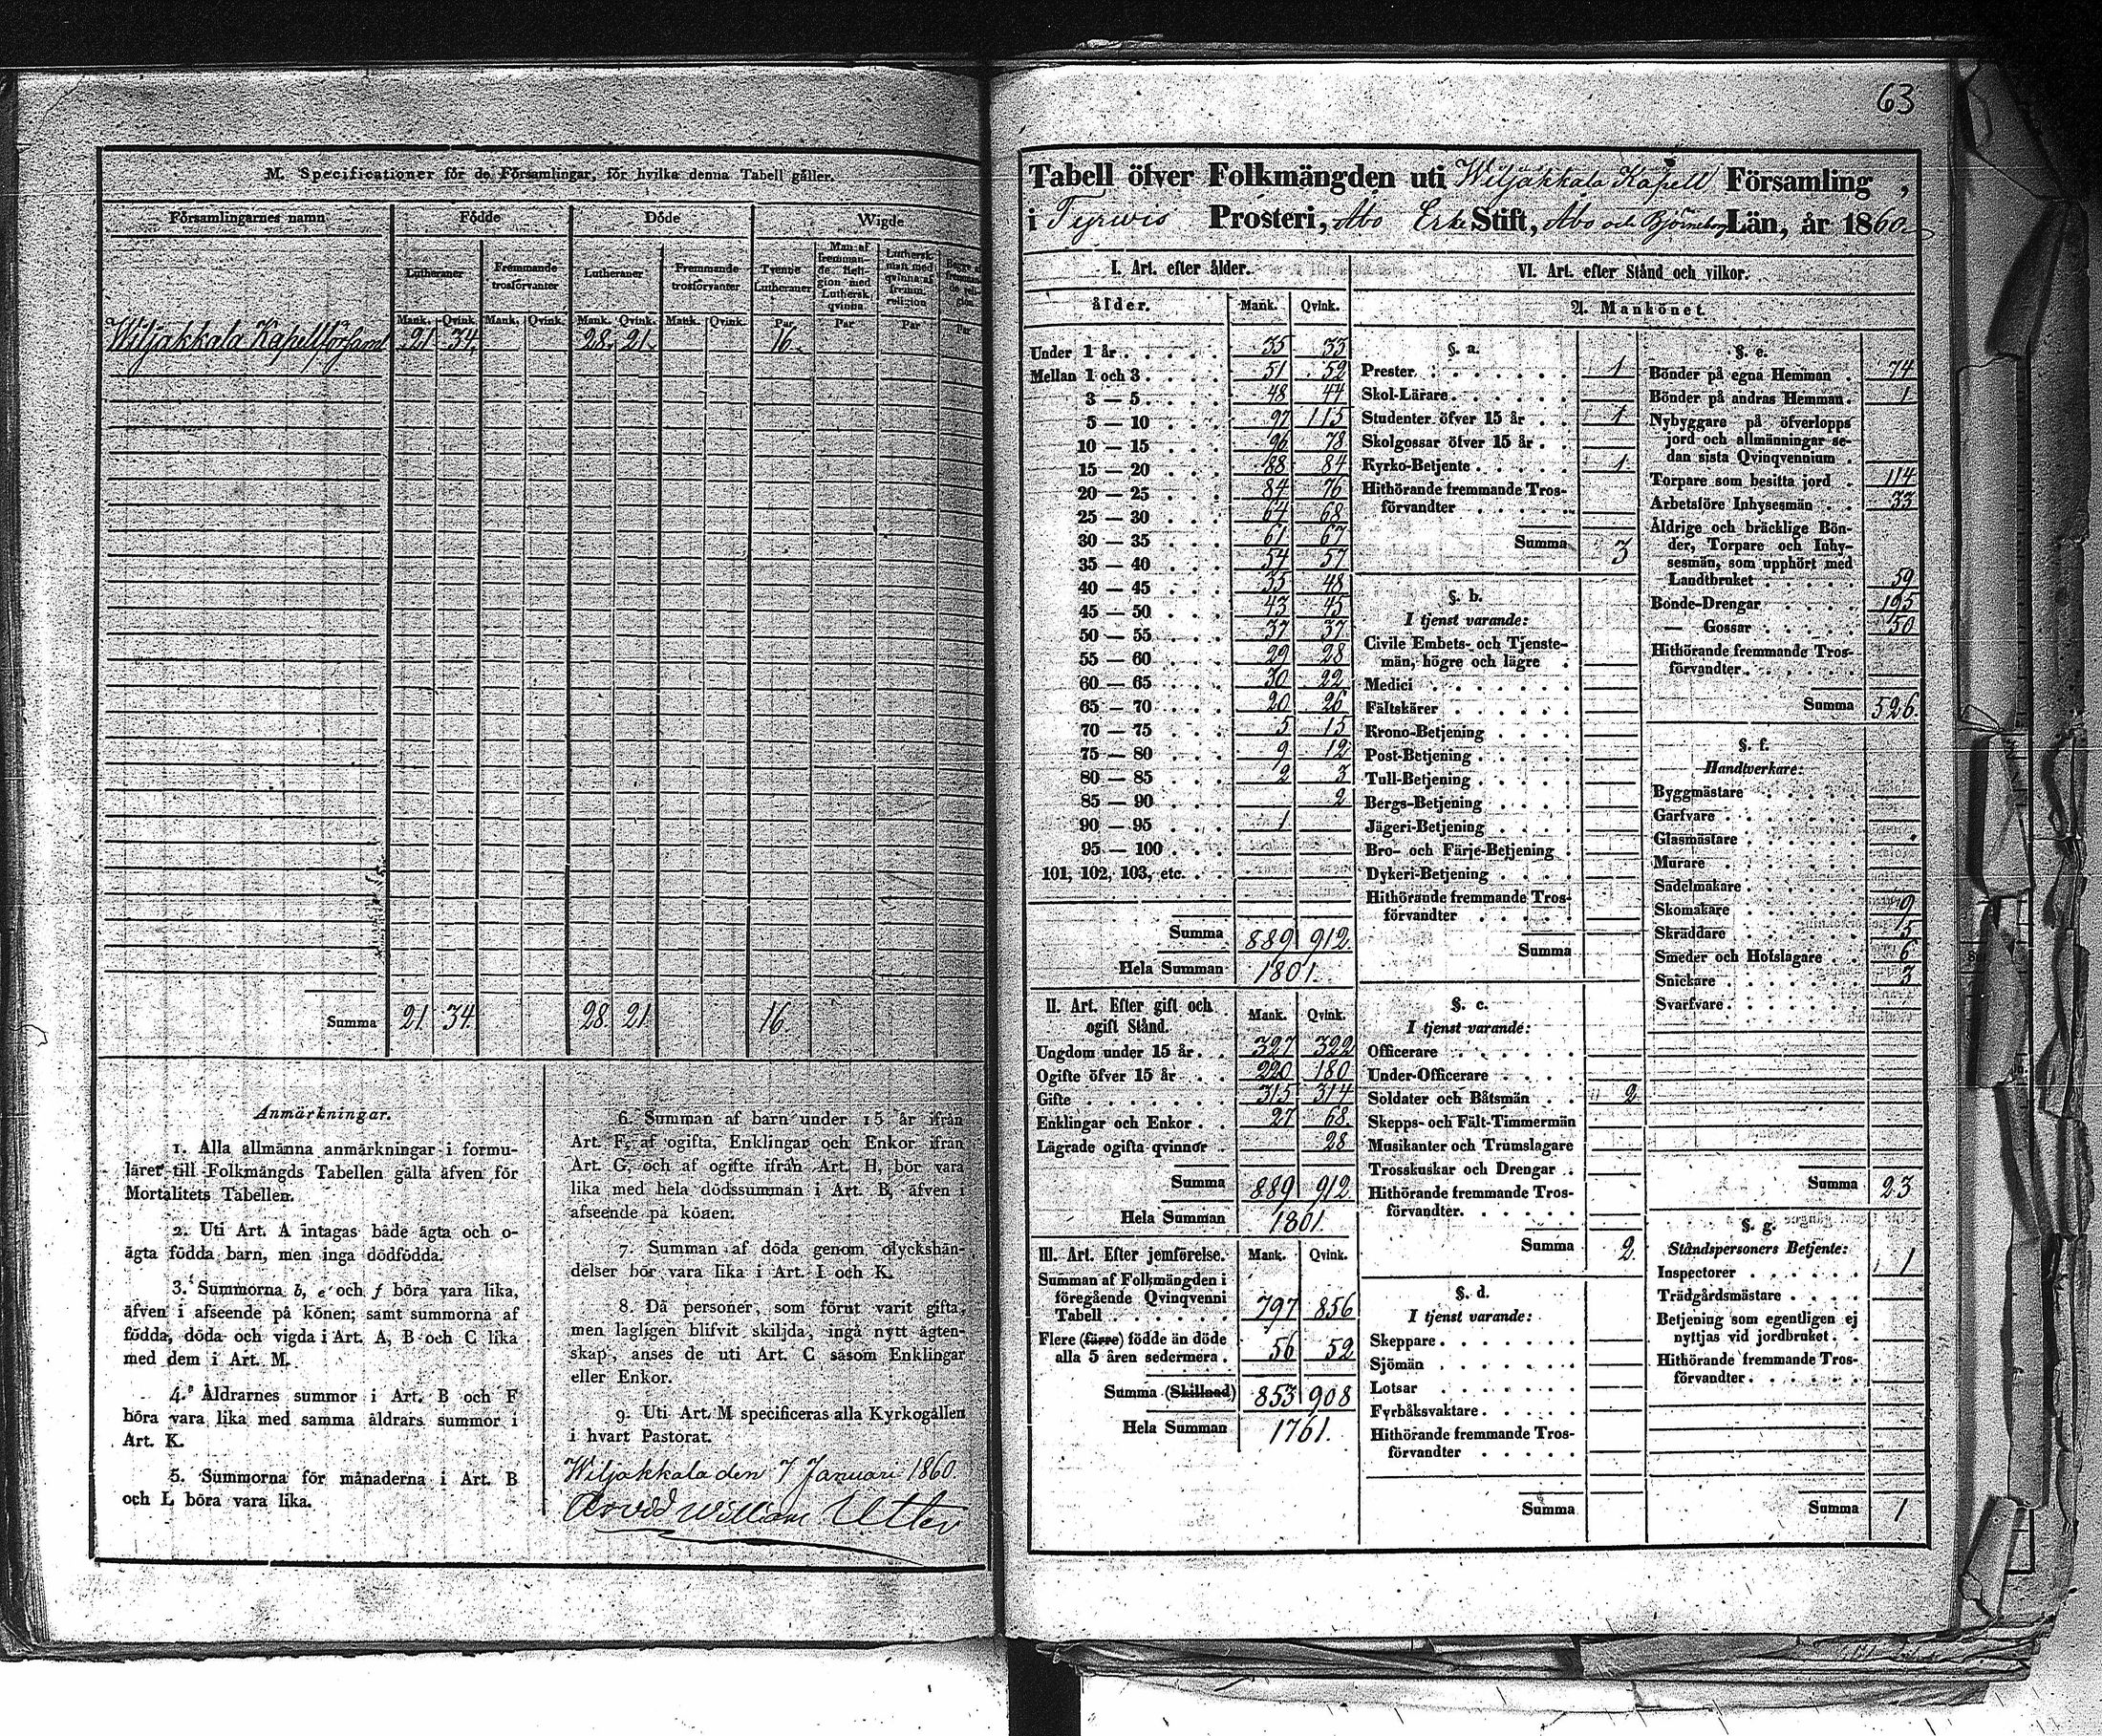 M. Specificationer för de Församlingar, för hvilka denna Tabell gäller.
Församlingarnes namn Födde Döde Wigde
Lutheraner Fremmande trosförvanter Lutheraner Fremmande trosförvanter Tvenne Lutheraner Man af fremmande Religion med Luthersk qvinna Luthersk man med qvinna af fremm. religion
Mank. Qvink. Mank. Qvink. Mank. Qvink. Mank. Qvink. Par Par Par Par
Wiljakkala Kapellförsaml 21 34 28 21 16
Summa 21 34 28 21 16
Anmärkningar.
1. Alla allmänna anmärkningar i formu-
läret till Folkmängds Tabellen gälla äfven för
Mortalitets Tabellen.
2. Uti Art. A intagas både ägta och o-
ägta födda barn, men inga dödfödda.
3. Summorna b, e och f böra vara lika,
äfven i afseende på könen; samt summorna af
födda, döda och vigda i Art. A, B och C lika
med dem i Art. M.
4. Åldrarnes summor i Art. B och F
böra vara lika med samma åldrars summor i
Art. K.
5. Summorna för månaderna i Art. B
och L böra vara lika.
6. Summan af barn under 15 år ifrån
Art. F, af ogifta, Enklingar och Enkor ifrån
Art. G, och af ogifte ifrån Art. H, bör vara
lika med hela dödssumman i Art. B, äfven i
afseende på könen.
7. Summan af döda genom olyckshän-
delser bör vara lika i Art. I och K.
8. Då personer, som förut varit gifta,
men lagligen blifvit skiljda, ingå nytt ägten-
skap, anses de uti Art. C såsom Enklingar
eller Enkor.
9. Uti Art. M specificeras alla Kyrkogällen
i hvart Pastorat.
Wiljakkala den 7 Januari 1860
Arvid William Utter
63
Tabell öfver Folkmängden uti Wiljakkala Kapell Församling,
i Tyrwis Prosteri, Åbo Erke Stift, Åbo och Björneborgs Län, år 1860
I. Art. efter ålder.
ålder. Mank. Qvink.
Under 1 år 35 33
Mellan 1 och 3 51 52
3 — 5 48 44
5 — 10 97 115
10 — 15 96 78
15 — 20 88 84
20 — 25 84 76
25 — 30 64 68
30 — 35 61 67
35 — 40 54 57
40 — 45 35 48
45 — 50 43 45
50 — 55 37 37
55 — 60 29 28
60 — 65 30 22
65 — 70 20 26
70 — 75 5 15
75 — 80 9 12
80 — 85 2 3
85 — 90 2
90 — 95 1
95 — 100
101, 102, 103, etc.
Summa 889 912
Hela Summan 1801.
II. Art. Efter gift och
ogift Stånd. Mank. Qvink.
Ungdom under 15 år 327 322
Ogifte öfver 15 år 220 180
Gifte 315 314
Enklingar och Enkor 27 68
Lägrade ogifta qvinnor 28
Summa 889 912
Hela Summan 1801.
III. Art. Efter jemförelse. Mank. Qvink.
Summan af Folkmängden i
föregående Qvinqvenni
Tabell 797 856
Flere (färre) födde än döde
alla 5 åren sedermera 56 52
Summa (Skillnad) 853 908
Hela Summan 1761.
VI. Art. efter Stånd och vilkor.
A. Mankönet.
§. a.
Prester 1
Skol-Lärare
Studenter öfver 15 år 1
Skolgossar öfver 15 år
Kyrko-Betjente 1
Hithörande fremmande Tros-
förvandter
Summa 3
§. b.
I tjenst varande:
Civile Embets- och Tjenste-
män, högre och lägre
Medici
Fältskärer
Krono-Betjening
Post-Betjening
Tull-Betjening
Bergs-Betjening
Jägeri-Betjening
Bro- och Färje-Betjening
Dykeri-Betjening
Hithörande fremmande Tros-
förvandter
Summa
§. c.
I tjenst varande:
Officerare
Under-Officerare
Soldater och Båtsmän 2
Skepps- och Fält-Timmermän
Musikanter och Trumslagare
Trosskuskar och Drengar
Hithörande fremmande Tros-
förvandter
Summa 2
§. d.
I tjenst varande:
Skeppare
Sjömän
Lotsar
Fyrbåksvaktare
Hithörande fremmande Tros-
förvandter
Summa
§. e.
Bönder på egna Hemman 74
Bönder på andras Hemman 1
Nybyggare på öfverlopps
jord och allmänningar se-
dan sista Qvinqvennium
Torpare som besitta jord 114
Arbetsföre Inhysesmän 33
Åldrige och bräcklige Bön-
der, Torpare och Inhy-
sesmän, som upphört med
Landtbruket 59
Bonde-Drengar 195
— Gossar 50
Hithörande fremmande Tros-
förvandter
Summa 526.
§. f.
Handtverkare:
Byggmästare
Garfvare
Glasmästare
Murare
Sadelmakare
Skomakare 9
Skräddare
Smeder och Hofslagare 6
Snickare 3
Svarfvare
Summa 23
§. g.
Ståndspersoners Betjente:
Inspectorer 1
Trädgårdsmästare
Betjening som egentligen ej
nyttjas vid jordbruket
Hithörande fremmande Tros-
förvandter
Summa 1